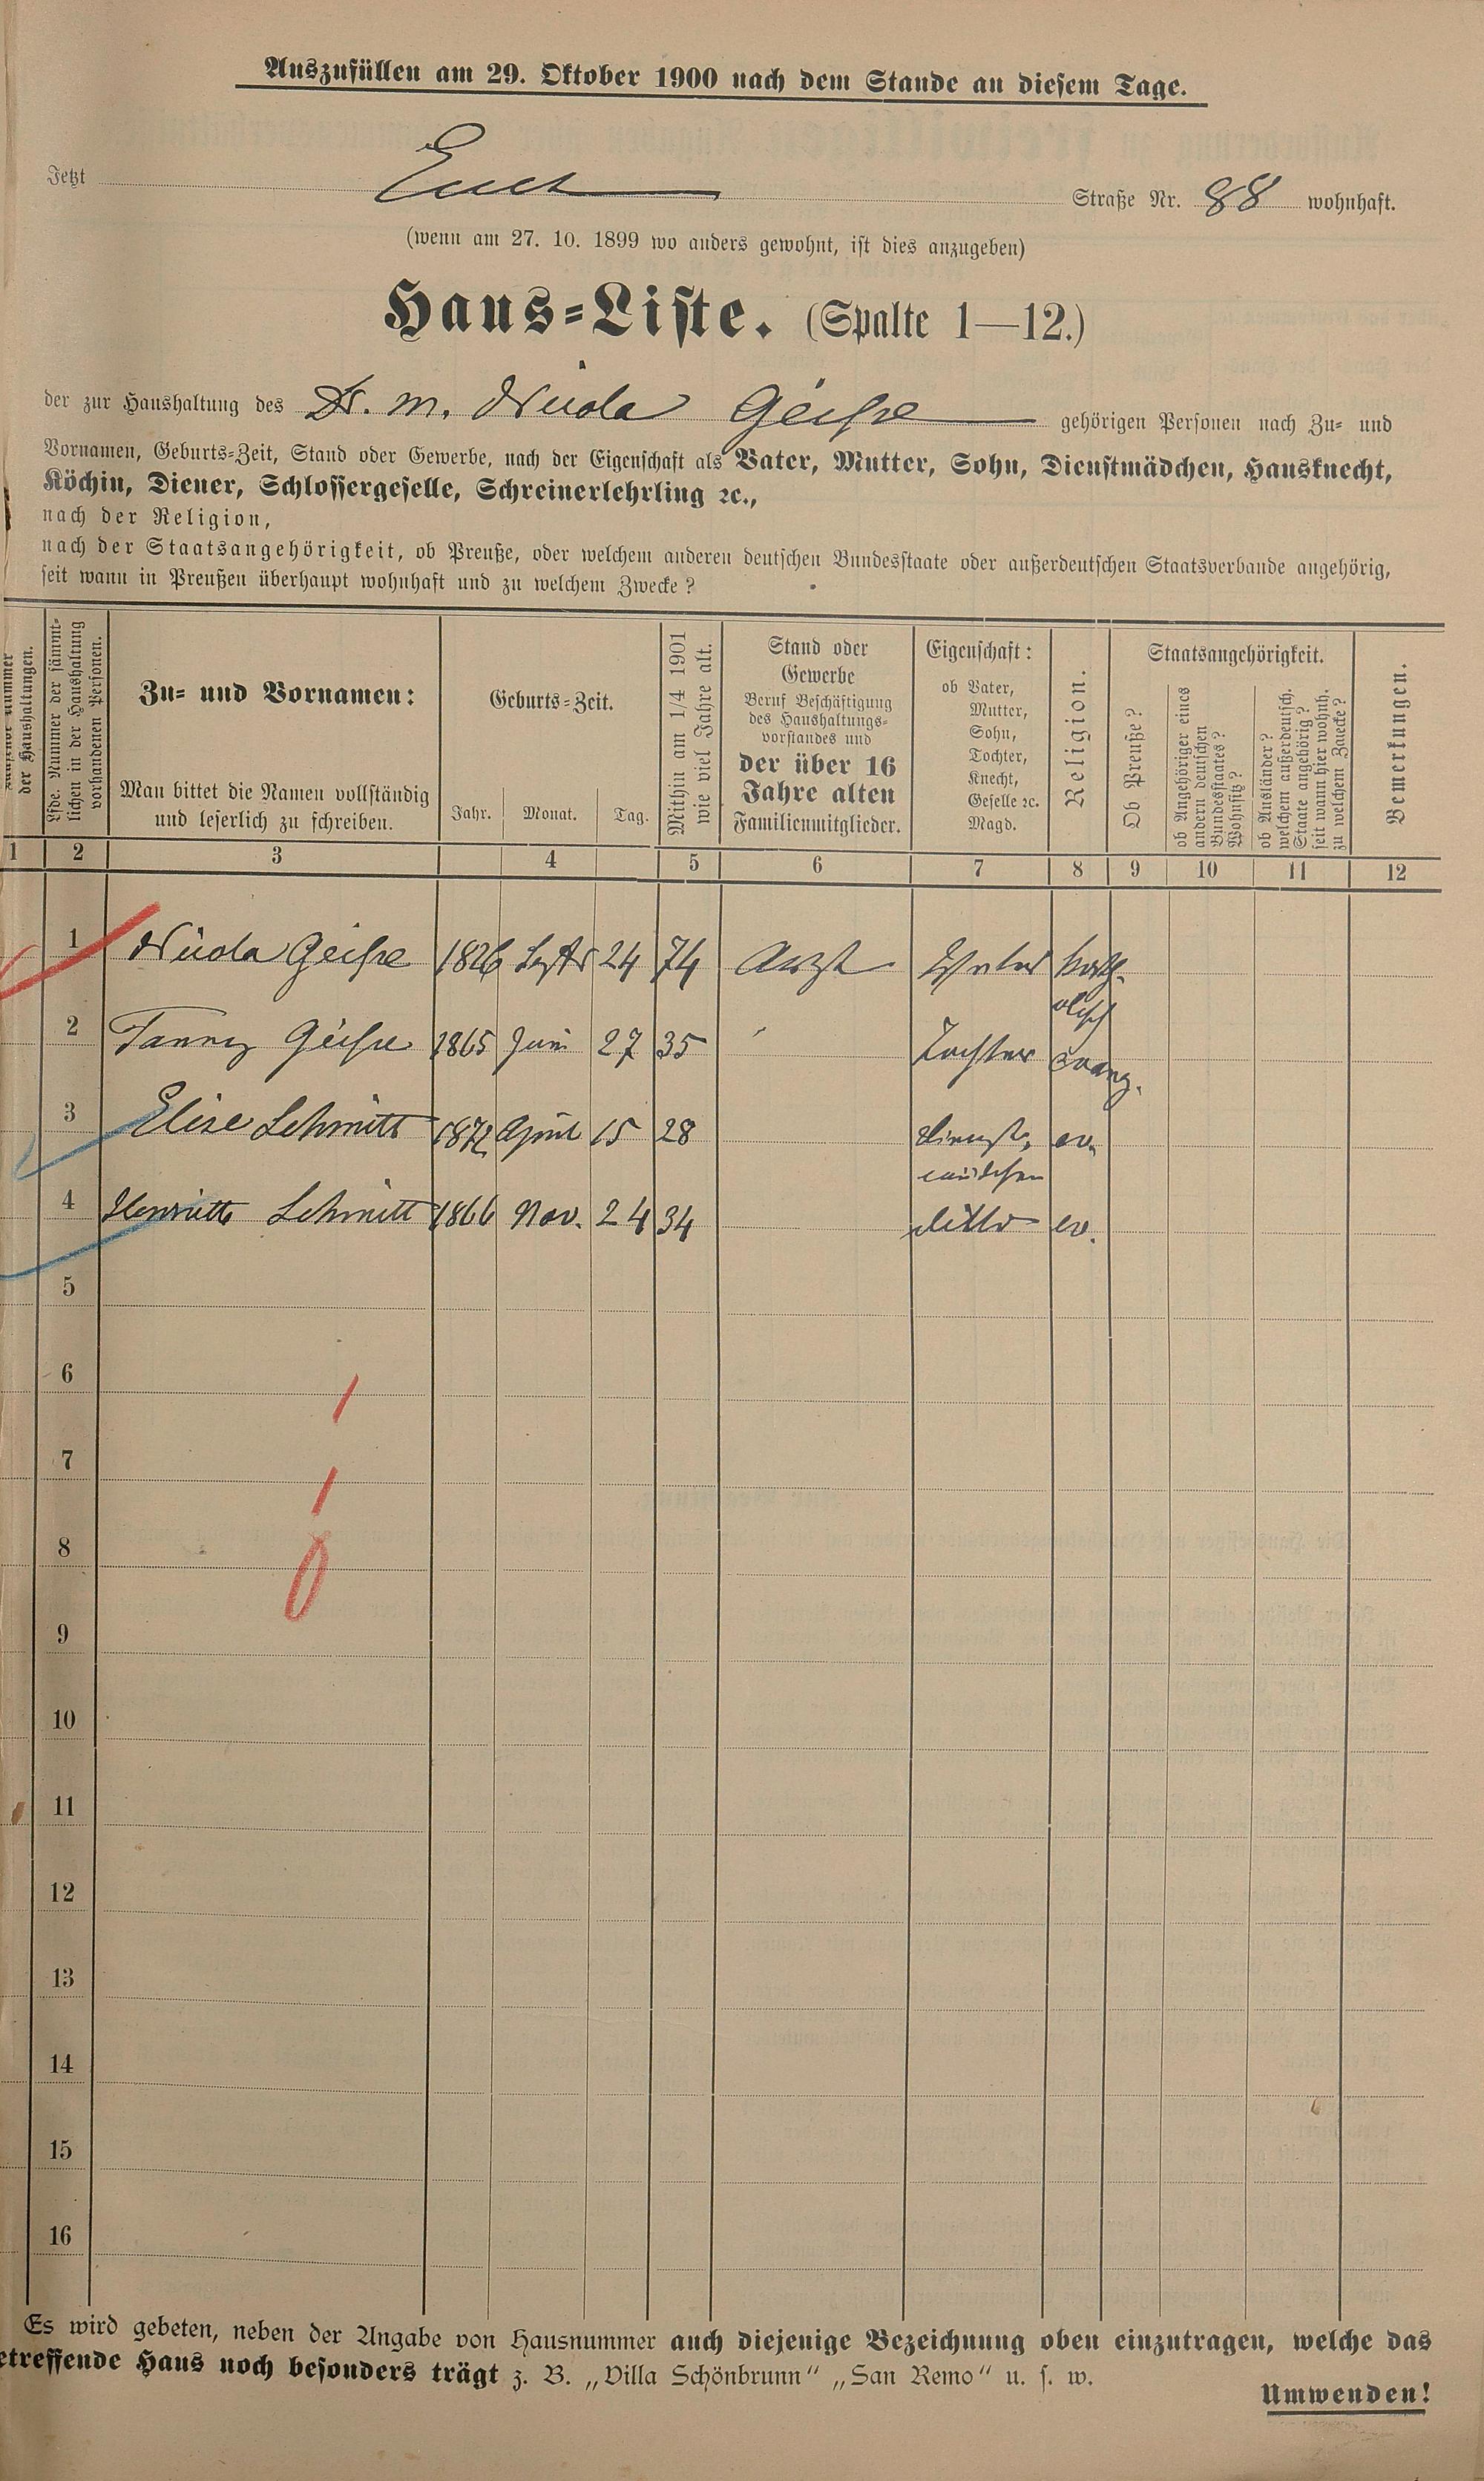 Auszufüllen am 29. Oktober 1900 nach dem Stande an diesem Tage.
Jetzt Straße Nr. 88 wohnhaft.
(wenn am 27. 10. 1899 wo anders gewohnt, ist dies anzugeben)
Haus-Liste. (Spalte 1—12.)
der zur Haushaltung des Dr. m. Geisse gehörigen Personen nach Zu- und
Vornamen, Geburts-Zeit, Stand oder Gewerbe, nach der Eigenschaft als Vater, Mutter, Sohn, Dienstmädchen, Hausknecht,
Köchin, Diener, Schlossergeselle, Schreinerlehrling ꝛc.,
nach der Religion,
nach der Staatsangehörigkeit, ob Preuße, oder welchem anderen deutschen Bundesstaate oder außerdeutschen Staatsverbande angehörig,
seit wann in Preußen überhaupt wohnhaft und zu welchem Zwecke?
der Haushaltungen.
Lfde. Nummer der sämmt-
lichen in der Haushaltung
vorhandenen Personen.
Zu- und Vornamen:
Man bittet die Namen vollständig
und leserlich zu schreiben.
Geburts-Zeit.
Jahr. Monat. Tag.
Mithin am 1/4 1901
wie viel Jahre alt.
Stand oder
Gewerbe
Beruf Beschäftigung
des Haushaltungs-
vorstandes und
der über 16
Jahre alten
Familienmitglieder.
Eigenschaft:
ob Vater,
Mutter,
Sohn,
Tochter,
Knecht,
Geselle ꝛc.
Magd.
Religion.
Staatsangehörigkeit.
Ob Preuße?
ob Angehöriger eines
andern deutschen
Bundesstaates?
Wohnsitz?
ob Ausländer?
welchem außerdeutsch.
Staate angehörig?
seit wann hier wohnh.
zu welchem Zwecke?
Bemerkungen.
1 2 3 4 5 6 7 8 9 10 11 12
1 Geisse 1826 Septbr 24 74 Arzt Vater kath-
olisch
2 Fanny Geisse 1865 Juni 27 35 Tochter evang.
3 Elise Schmitt 1872 April 15 28 Dienst- ev.
mädchen
4 Henriette Schmitt 1866 Nov. 24 34 ditto ev.
5
6
7
8
9
10
11
12
13
14
15
16
Es wird gebeten, neben der Angabe von Hausnummer auch diejenige Bezeichnung oben einzutragen, welche das
etreffende Haus noch besonders trägt z. B. „Villa Schönbrunn" „San Remo" u. s. w.
Umwenden!